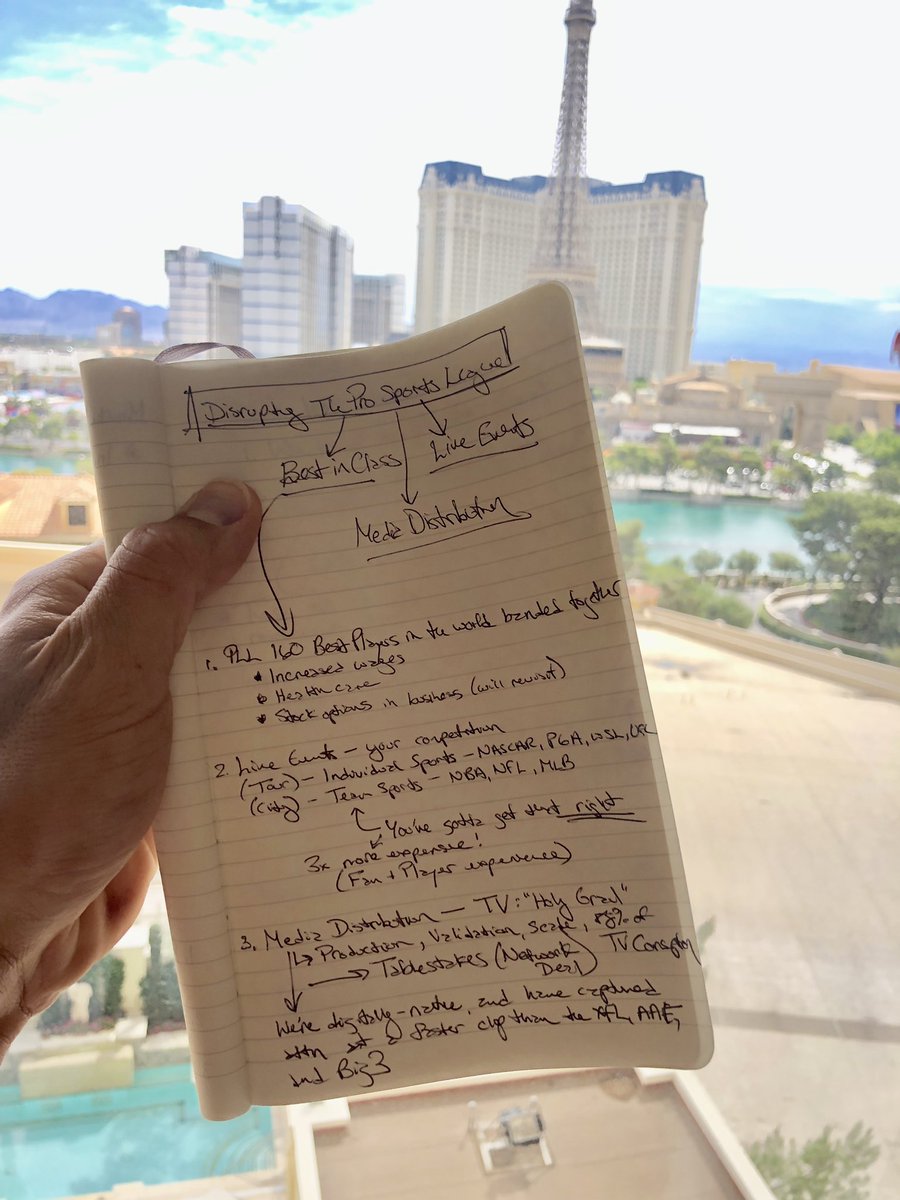 Disrupting The Pro Sports League
Best in Class
Live Events
Media Distribution
1. PLL 160 Best Players in the world banded together
• Increased wages
• Health care
• Stock options in business (will revisit)
2. Live Events – your competition
(Tour) – Individual Sports – NASCAR, PGA, WSL, UFC
(City) – Team Sports – NBA, NFL, MLB
You've gotta get that right
3x more expensive!
(Fan + Player experience)
3. Media Distribution – TV: "Holy Grail"
Production, Validation, Scale, % of
TV Consumption
Tablestakes (Network
Deal)
We're digitally-native, and have captured
attn at a faster clip than the XFL, AAF,
and Big3